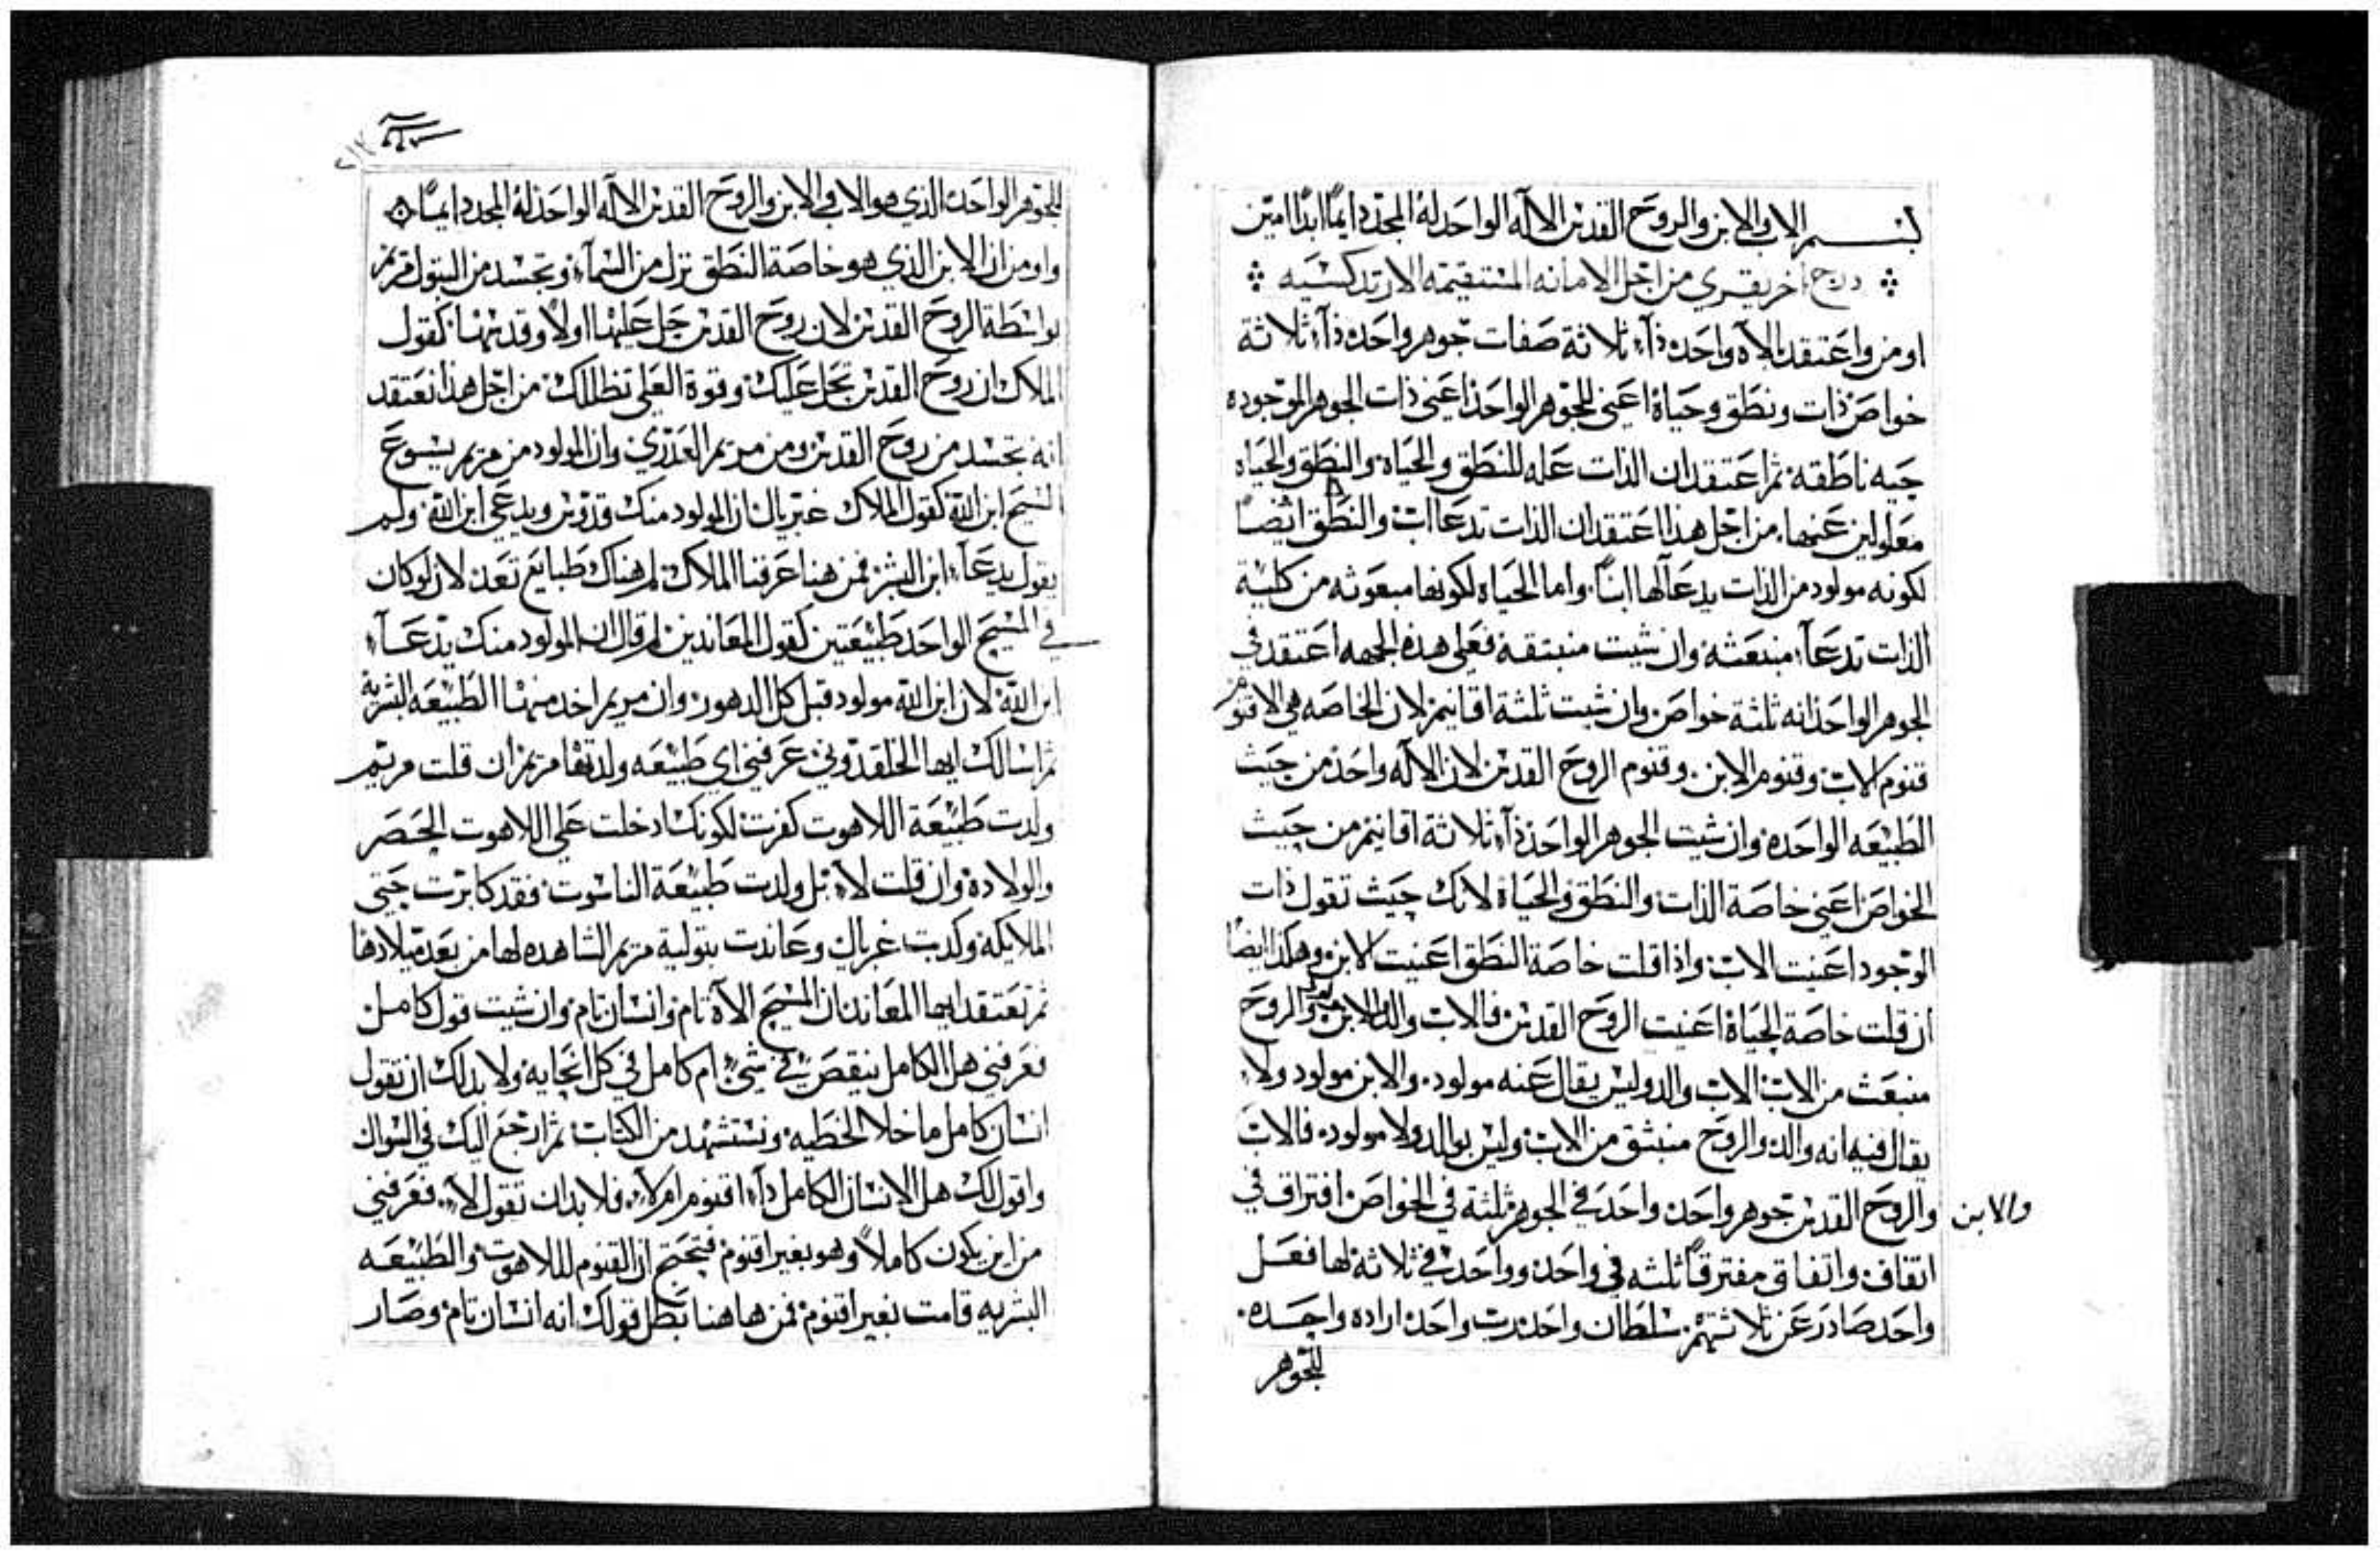 بسم الاب والابن والروح القدس الاله الواحد له المجد دايماً ابداً امين
درج اخر يقري من اجل الامانه المستقيمه الارتدكسيه
اومن واعتقد بالاه واحد ذا ثلاثة صفات جوهر واحد ذا ثلاثة
خواص ذات ونطق وحياة اعني للجوهر الواحد اعني ذات الجوهر الموجوده
حيه ناطقه ثم اعتقد ان الذات عله للنطق والحياه والنطق والحياه
معلولين عنها من اجل هذا اعتقد ان الذات تدعا اب والنطق ايضاً
لكونه مولود من الذات يدعا لها ابناً واما الحياه لكونها مبعوثه من كلية
الذات تدعا منبعثه وان شيت منبثقه فعلى هذه الجهه اعتقد في
الجوهر الواحد انه ثلثة خواص وان شيت ثلثة اقانيم لان الخاصه هي الاقنوم
قنوم الاب وقنوم الابن وقنوم الروح القدس لان الاله واحد من حيث
الطبيعه الواحده وان شيت الجوهر الواحد ذا ثلاثة اقانيم من حيث
الخواص اعني خاصة الذات والنطق والحياة لانك حيث تقول ذات
الوجود اعنيت الاب واذا قلت خاصة النطق اعنيت الابن وهكذا ايضاً
ان قلت خاصة الحياة اعنيت الروح القدس فالاب والد الابن والروح
منبعث من الاب الاب والد وليس يقال عنه مولود والابن مولود ولا
يقال فيه انه والد والروح منبثق من الاب وليس بوالد ولا مولود فالاب
والابن والروح القدس جوهر واحد واحد في الجوهر ثلثة في الخواص افتراق في
اتفاق واتفاق مفترقاً ثلثه في واحد وواحد في ثلاثة لها فعل
واحد صادر عن ثلاثتهم سلطان واحد رب واحد اراده واحده
للجوهر
للجوهر الواحد الذي هو الاب والابن والروح القدس الاله الواحد له المجد دايماً
واومن ان الابن الذي هو خاصة النطق نزل من السمآء وتجسد من البتول مريم
بواسطة الروح القدس لان روح القدس حل عليها اولاً وقدسها كقول
الملاك ان روح القدس تحل عليك وقوة العلي تظللك من اجل هذا نعتقد
انه تجسد من روح القدس ومن مريم العذري وان المولود من مريم يسوع
المسيح ابن الله كقول الملاك غبريال ان المولود منك قدوس ويدعي ابن الله ولم
يقول يدعا ابن البشر فمن هنا عرفنا الملاك لم هناك طبايع تعد لان لو كان
في المسيح الواحد طبيعتين كقول المعاندين لم قال ان المولود منك يدعا
ابن الله لان ابن الله مولود قبل كل الدهور وان مريم اخد منها الطبيعه البشريه
ثم اسالك ايها الخلقدوني عرفني اي طبيعه ولدتها مريم ان قلت مريم
ولدت طبيعة اللاهوت كفرت لكونك ادخلت علي اللاهوت الحصر
والولادة وان قلت لا بل ولدت طبيعة الناسوت فقد كابرت حتى
الملايكه وكدبت غبريال وعاندت بتولية مريم الشاهده لها من بعد ميلادها
ثم تعتقد ايها المعاند ان المسيح الاة تام وانسان تام وان شيت قول كامل
فعرفني هل الكامل ينقص شي ام كامل في كل ولا بد لك ان تقول
انسان كامل ما خلا الخطيه ونستشهد من الكتاب ثم ارجع اليك في السوال
واقول لك هل الانسان الكامل دا اقنوم ام لا فلا بد ان تقول لا فعرفني
من اين يكون كاملاً وهو بغير اقنوم فتحتج ان القنوم لللاهوت والطبيعه
البشريه قامت بغير اقنوم فمن هاهنا بطل قولك انه انسان تام وصار